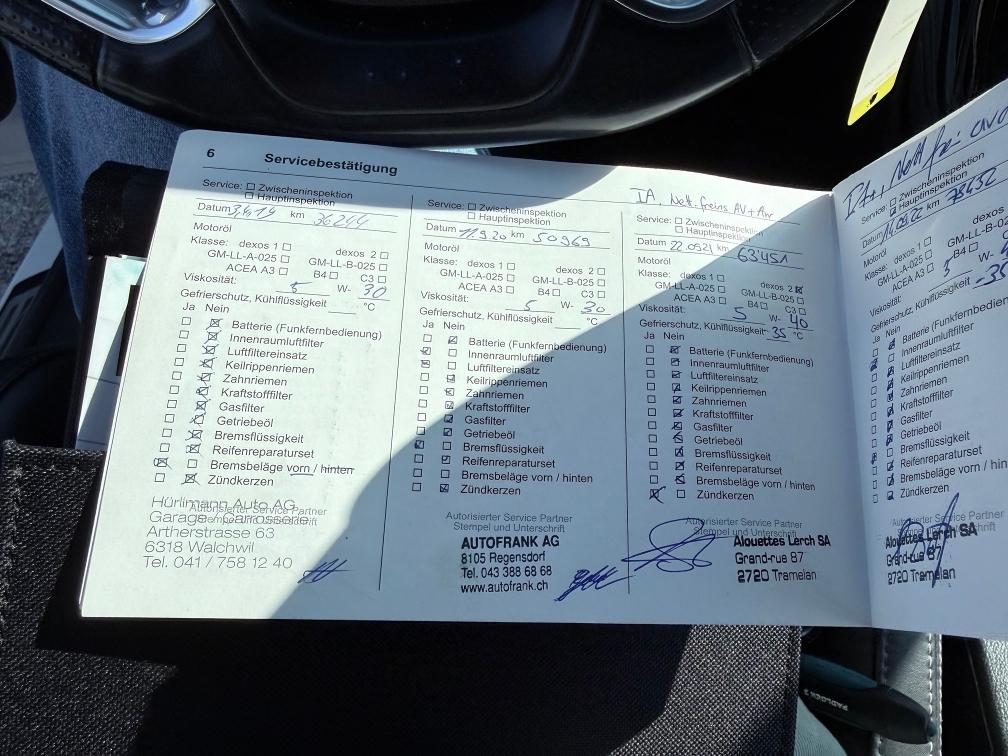 6 Servicebestätigung
Service: Zwischeninspektion
Hauptinspektion
Datum 3.4.19 km 36244
Motoröl
Klasse: dexos 1 dexos 2
GM-LL-A-025 GM-LL-B-025
ACEA A3 B4 C3
Viskosität: 5 W- 30
Gefrierschutz, Kühlflüssigkeit °C
Ja Nein
Batterie (Funkfernbedienung)
Innenraumluftfilter
Luftfiltereinsatz
Keilrippenriemen
Zahnriemen
Kraftstofffilter
Gasfilter
Getriebeöl
Bremsflüssigkeit
Reifenreparaturset
Bremsbeläge vorn / hinten
Zündkerzen
Autorisierter Service Partner
Stempel und Unterschrift
Hürlimann Auto AG
Garage - Carrosserie
Artherstrasse 63
6318 Walchwil
Tel. 041 / 758 12 40
Service: Zwischeninspektion
Hauptinspektion
Datum 11.9.20 km 50969
Motoröl
Klasse: dexos 1 dexos 2
GM-LL-A-025 GM-LL-B-025
ACEA A3 B4 C3
Viskosität: 5 W- 30
Gefrierschutz, Kühlflüssigkeit °C
Ja Nein
Batterie (Funkfernbedienung)
Innenraumluftfilter
Luftfiltereinsatz
Keilrippenriemen
Zahnriemen
Kraftstofffilter
Gasfilter
Getriebeöl
Bremsflüssigkeit
Reifenreparaturset
Bremsbeläge vorn / hinten
Zündkerzen
Autorisierter Service Partner
Stempel und Unterschrift
AUTOFRANK AG
8105 Regensdorf
Tel. 043 388 68 68
www.autofrank.ch
IA, Nett. freins AV + Arr
Service: Zwischeninspektion
Hauptinspektion
Datum 22.0921 km 63'451
Motoröl
Klasse: dexos 1 dexos 2
GM-LL-A-025 GM-LL-B-025
ACEA A3 B4 C3
Viskosität: 5 W- 40
Gefrierschutz, Kühlflüssigkeit -35 °C
Ja Nein
Batterie (Funkfernbedienung)
Innenraumluftfilter
Luftfiltereinsatz
Keilrippenriemen
Zahnriemen
Kraftstofffilter
Gasfilter
Getriebeöl
Bremsflüssigkeit
Reifenreparaturset
Bremsbeläge vorn / hinten
Zündkerzen
Autorisierter Service Partner
Stempel und Unterschrift
Alouettes Lerch SA
Grand-rue 87
2720 Tramelan
Nett
Service: Zwischeninspektion
Hauptinspektion
Datum 14.09.22 km 78452
Motoröl
Klasse: dexos 1
GM-LL-A-025 GM-LL-B-0
ACEA A3 B4
Viskosität: 5 W-
Gefrierschutz, Kühlflüssigkeit -35
Ja Nein
Batterie (Funkfernbedie
Innenraumluftfilter
Luftfiltereinsatz
Keilrippenriemen
Zahnriemen
Kraftstofffilter
Gasfilter
Getriebeöl
Bremsflüssigkeit
Reifenreparaturset
Bremsbeläge vorn / hi
Zündkerzen
Autorisierter Service Partner
Stempel und Unterschrift
Alouettes Lerch SA
Grand-rue 87
2720 Tramelan